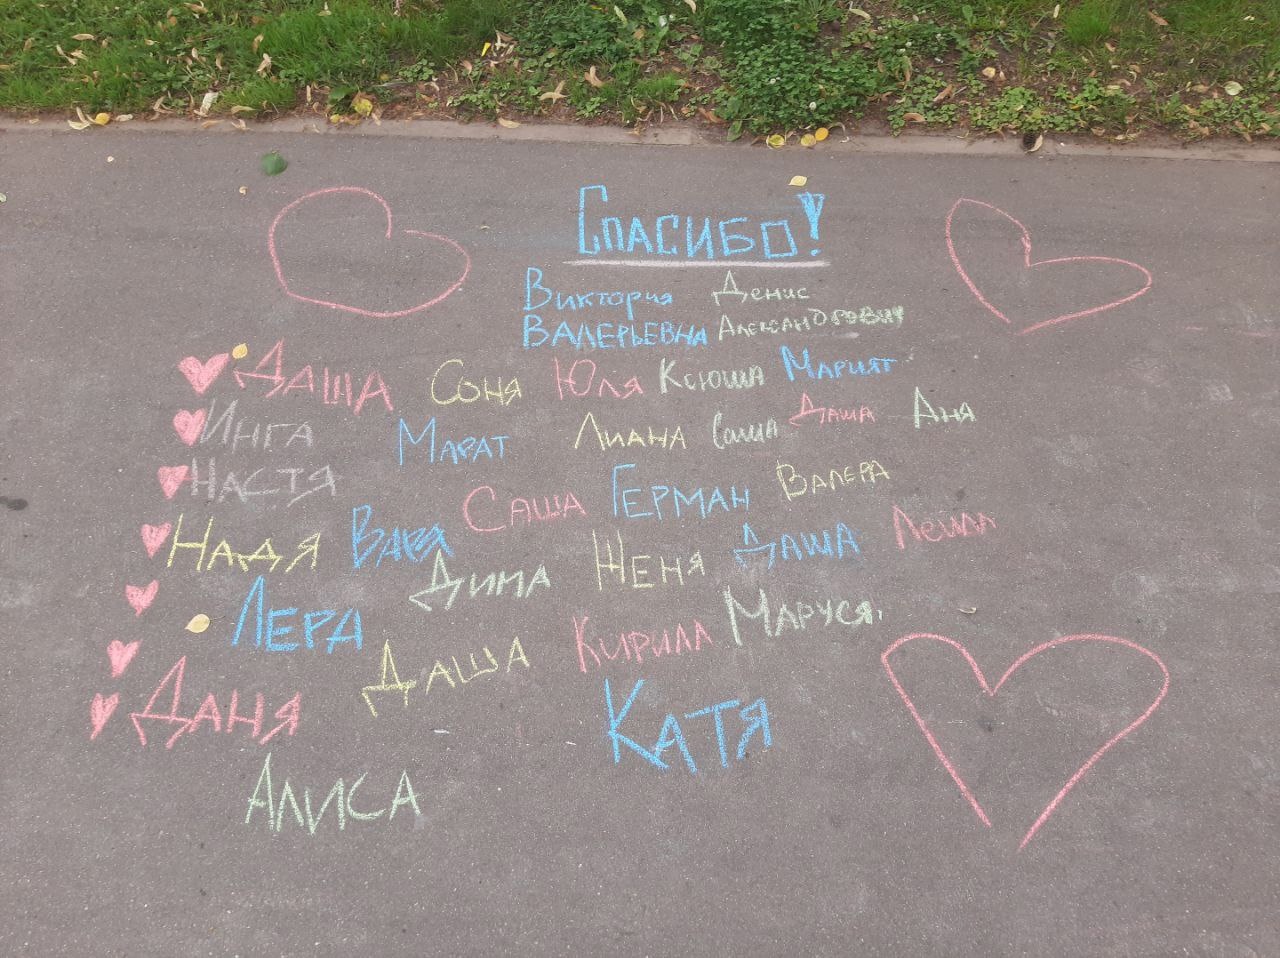 Спасибо!
Виктория Денис
Валерьевна Александрович
Даша Соня Юля Ксюша Марият
Инга Марат Лиана Саша Даша Аня
Настя Саша Герман Валера
Надя Варя Дима Женя Даша Лейла
Лера Даша Кирилл Маруся
Даня Катя
Алиса